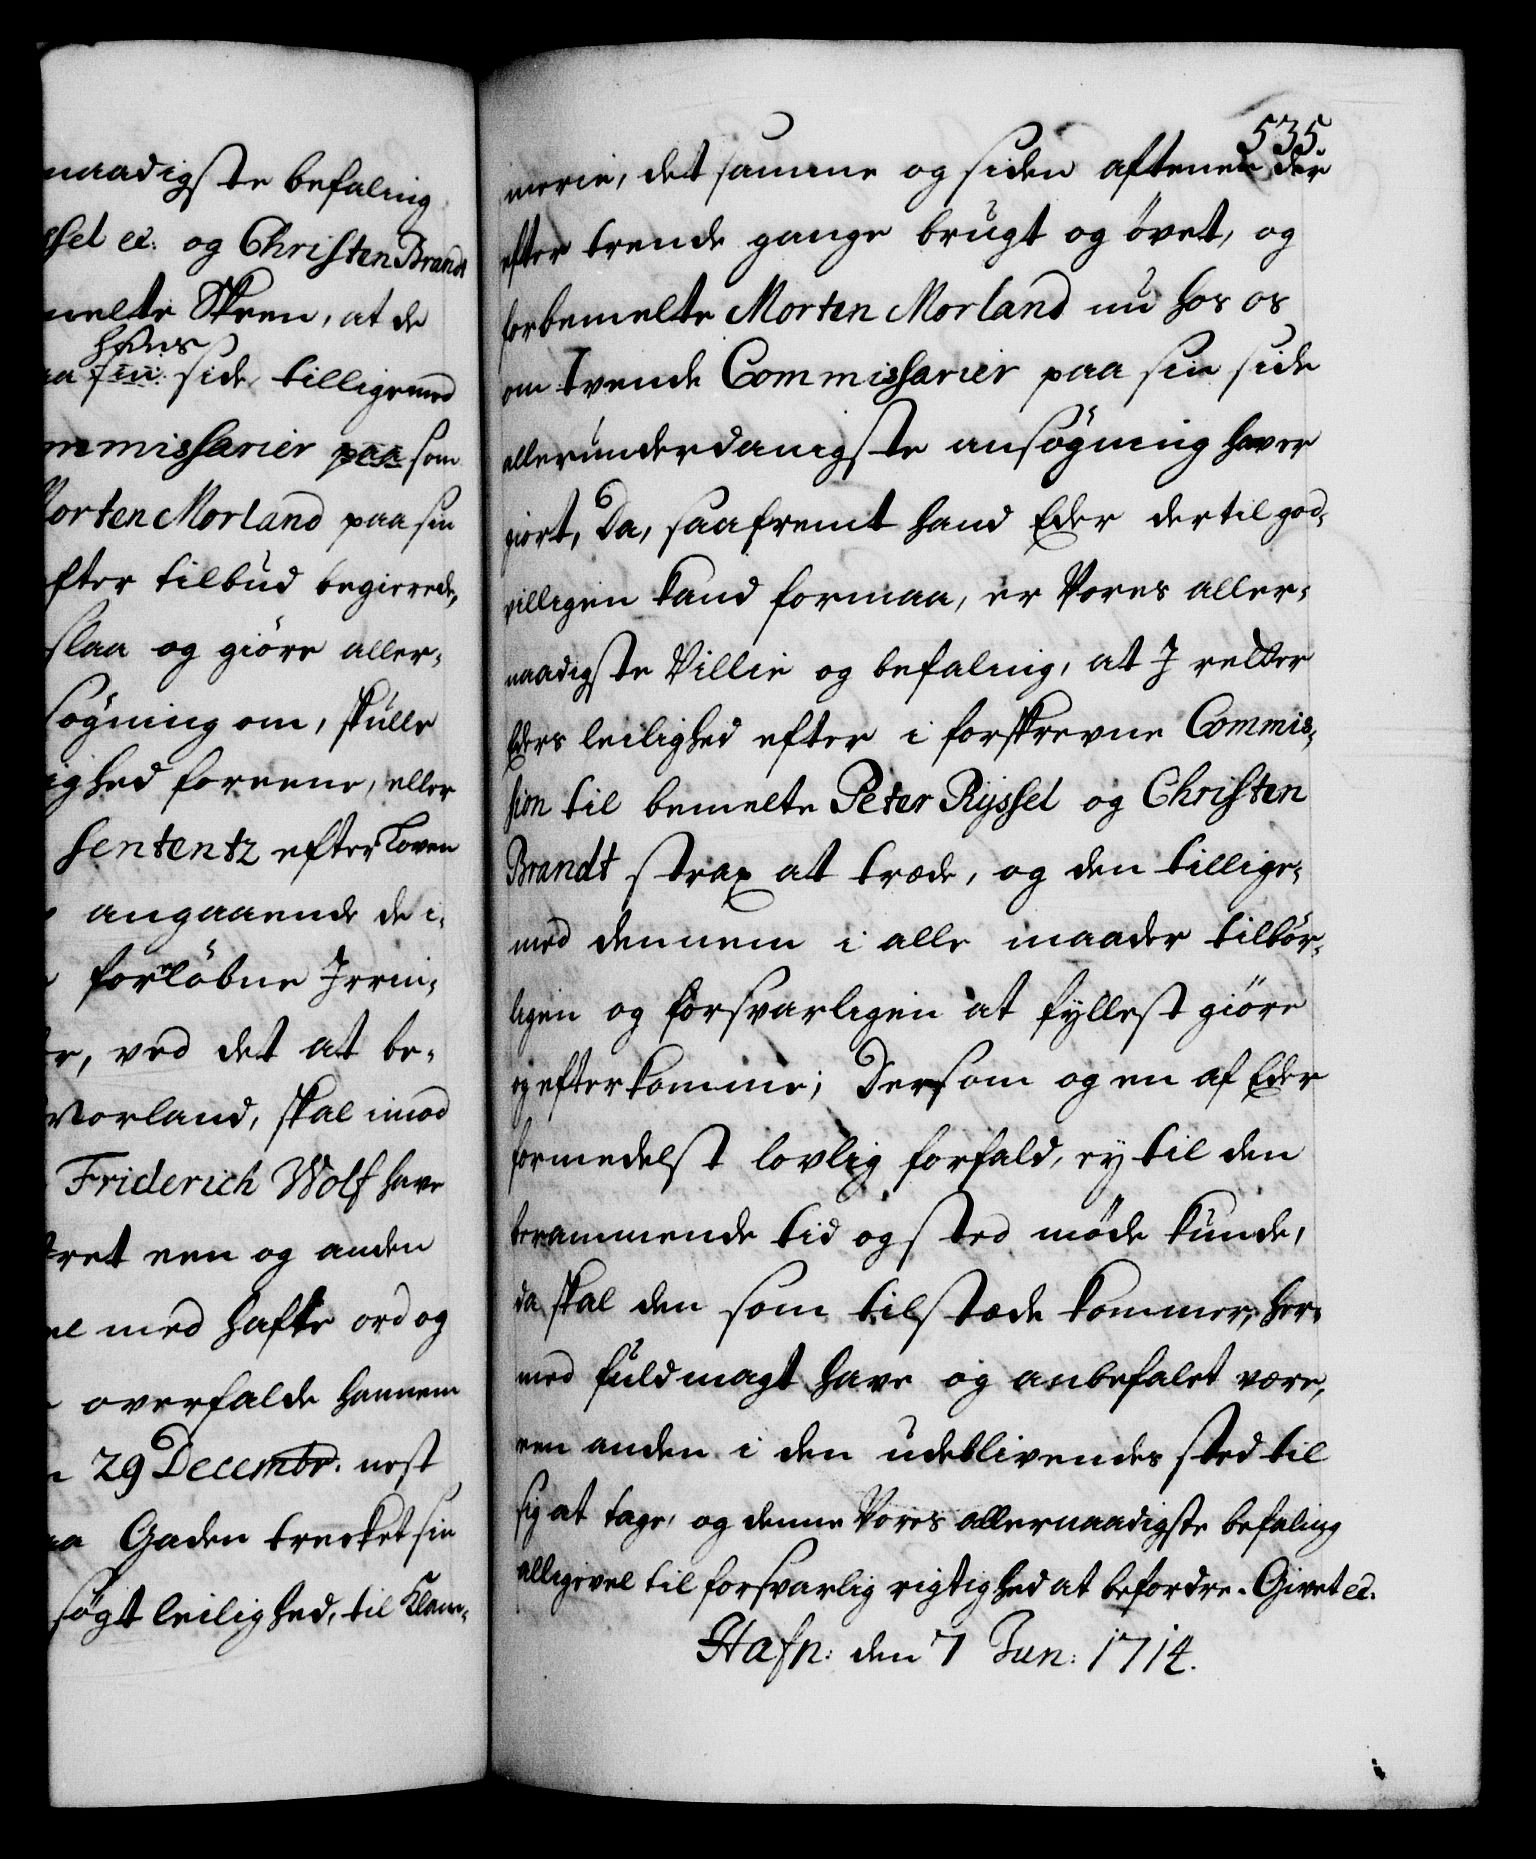 naadigste befaling
ssel etc: og Christen Brandt
melte Skeen, at de
hans
aa sin side tilligemed
mmissarier paa som
Morten Morland paa sin
efter tilbud begierede,
slaa og giöre aller-
søgning om, skulle
ighed foreene, eller
sententz efter Loven
angaaende de i-
forløbne Irrin-
er, ved det at be-
Morland, skal imod
Friderich Wolf have
tret een og anden
el med hafte ord og
overfalde hannem
n 29 Decembr. nest
aa Gaden trecket sin
søgt leilighed, til Klam-
535.
merie, det samme og siden aftenen der
efter trende gange brugt og övet, og
forbemelte Morten Morland nu hos os
om tvende Commissarier paa sin side
allerunderdanigste ansøgning haver
giort, Da, saafremt hand Eder dertil god-
villigen kand formaa, er Vores aller-
naadigste Villie og befaling, at I retter
Eders leilighed efter i forskrevne Commis-
sion til bemelte Peter Ryssel og Christen
Brandt strax at træde, og den tillige-
med dennem i alle maader tilbör-
ligen og forsvarligen at fyllest giöre
og efterkomme; Dersom og en af Eder
formedelst lovlig forfald, ey til den
berammende tid og sted möde kunde,
da skal den som tilstæde kommer, her-
med fuldmagt have og anbefalet være,
een anden i den udeblivendes sted til
sig at tage, og denne Vores allernaadigste befaling
alligevel til forsvarlig rigtighed at befordre. Givet etc.
Hafn: den 7 Jun: 1714.